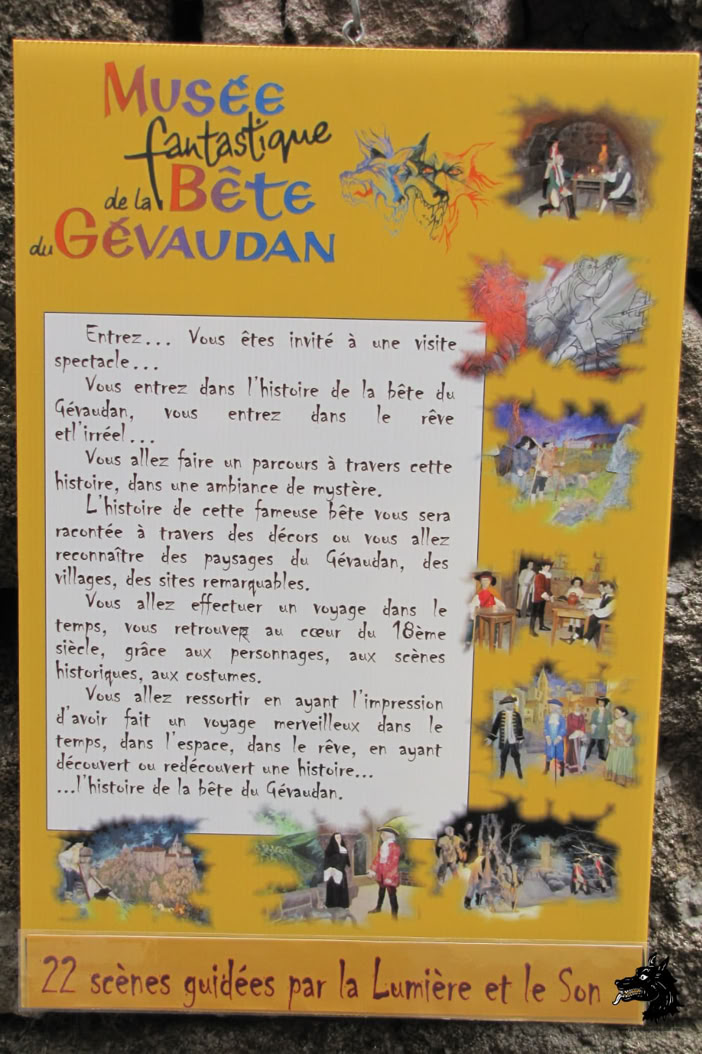 Musée
fantastique
de la Bête
du Gévaudan
Entrez... Vous êtes invité à une visite
spectacle...
Vous entrez dans l'histoire de la bête du
Gévaudan, vous entrez dans le rêve
etl'irréel...
Vous allez faire un parcours à travers cette
histoire, dans une ambiance de mystère.
L'histoire de cette fameuse bête vous sera
racontée à travers des décors ou vous allez
reconnaître des paysages du Gévaudan, des
villages, des sites remarquables.
Vous allez effectuer un voyage dans le
temps, vous retrouver au cœur du 18ème
siècle, grâce aux personnages, aux scènes
historiques, aux costumes.
Vous allez ressortir en ayant l'impression
d'avoir fait un voyage merveilleux dans le
temps, dans l'espace, dans le rêve, en ayant
découvert ou redécouvert une histoire...
...l'histoire de la bête du Gévaudan.
22 scènes guidées par la Lumière et le Son